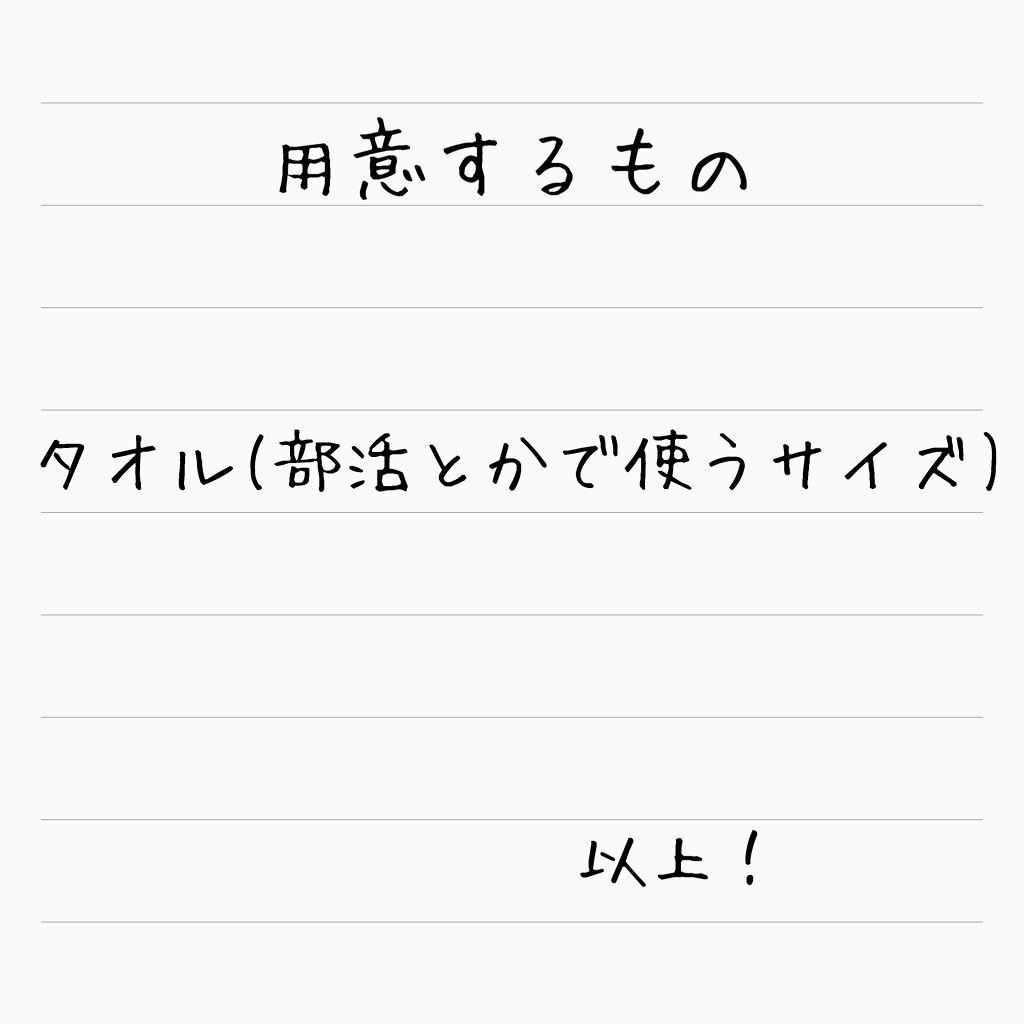 用意するもの
タオル(部活とかで使うサイズ)
以上！